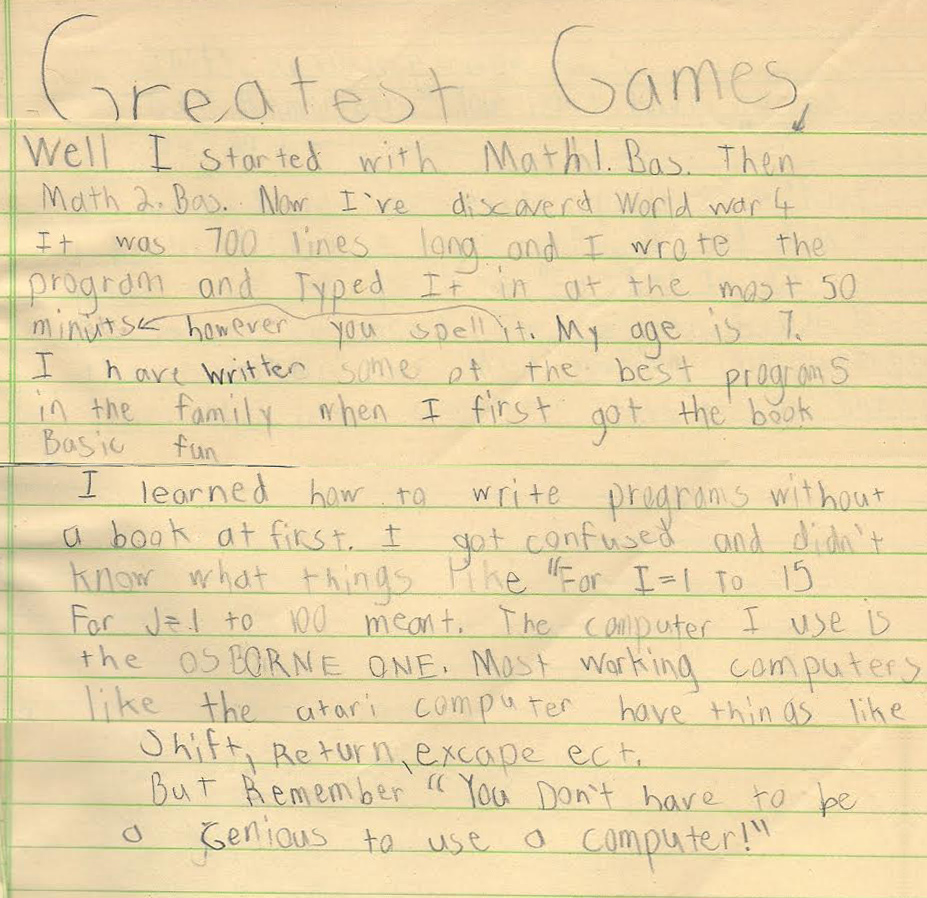 Greatest Games
Well I started with Math1. Bas. Then
Math 2. Bas. Now I've discaverd World war 4
It was 700 lines long and I wrote the
program and Typed It in at the most 50
minuts however you spell it. My age is 7.
I have written some of the best programs
in the family when I first got the book
Basic fun
I learned how to write programs without
a book at first. I got confused and didn't
know what things like "For I=1 To 15
For J=1 to 100 meant. The computer I use is
the OSBORNE ONE. Most working computers
like the atari computer have things like
Shift, Return, excape ect.
But Remember "You Don't have to be
a Genious to use a computer!"